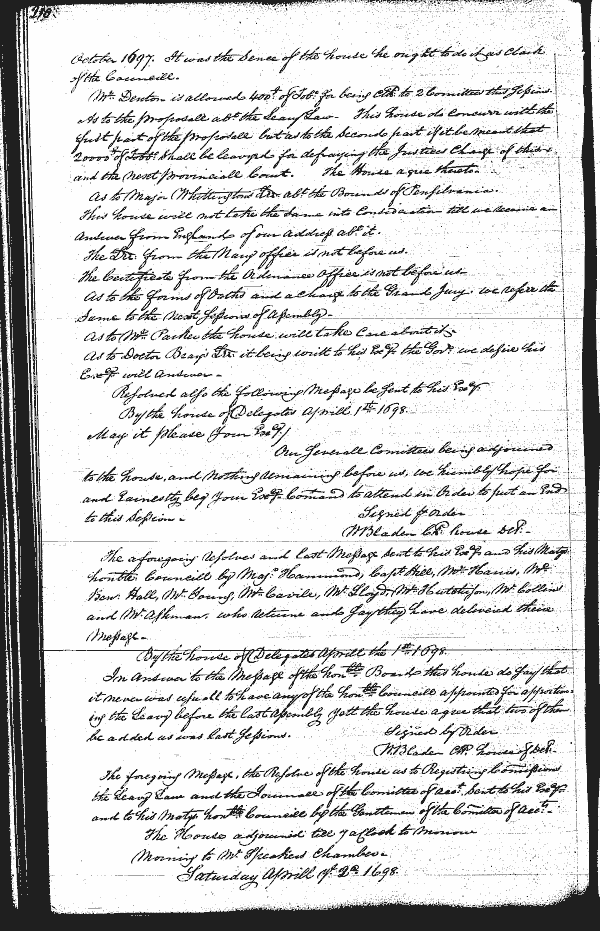 October 1697. It was the Sence of the house he ought to do it as Clark
of the Councill.
Mr. Denton is allowed 400lt of Tob. for being Clk to 2 Comittees this Session.
As to the Proposall abt. the Leavy Law. This house do Concurr with the
first part of the Proposall but as to the Second part if it be meant that
20000lt of Tobb. Shall be leavyed for defraying the Justices Charge of this
and the next Provinciall Court. The House agree thereto.
As to Major Whittingtons Lre. abt. the Bounds of Pensilvania.
This house will not take the Same into Consideration till we receive an
Answer from England of our Address abt. it.
The Lre. from the Navy office is not before us.
The Certificate from the Ordinance Office is not before us
As to the forms of Oaths and a Charge to the Grand Jury. we referr the
Same to the Next Sessions of Assembly.
As to Mr. Parker the house will take Care about it.
As to Doctor Brays Lre. it being writt to his Exy. the Govr. we desire his
Exy. will Answer.
Resolved also the following Message be Sent to his Exy.
By the house of Delegates Aprill 1st. 1698.
May it please Your Exy./
Our Severall Comittees being adjourned
to the house, and nothing remaining before us, we humbly hope for
and Earnestly beg Your Exy. Comand to attend in Order to put an End
to this Session.
Signed p Order
WBladen Clk. house Del.
The aforegoing resolves and last Message Sent to his Exy. and his Matys
honble. Councill by Maj. Hammond, Capt. Hill, Mr. Harris, Mr.
Ben. Hall, Mr. Young, Mr. Cavile, Mr. Lloyd, Mr. Hutchison, Mr. Collins
and Mr. Ashman. who returne and Say they have delivered their
Message.
By the house of Delegates Aprill the 1st. 1698.
In Answer to the Message of the honble. Board this house do Say that
it never was usuall to have any of the honble Councill appointed for apportion-
ing the Leavy before the last Assembly yett the house agree that two of them
be added as was last Sessions.
Signed by Order
WBladen Clk. house of Del.
The foregoing Message, the Resolve of the house as to Registring Comissions
the Leavy Law and the Journall of the Comittee of acct. Sent to his Exy.
and to his Matys honble Councill by the Gentlemen of the Comittee of accts.
The House adjourned till 7 a Clock to Morrow
Morning to Mr. Speakers Chamber.
Saturday Aprill ye. 2d. 1698.